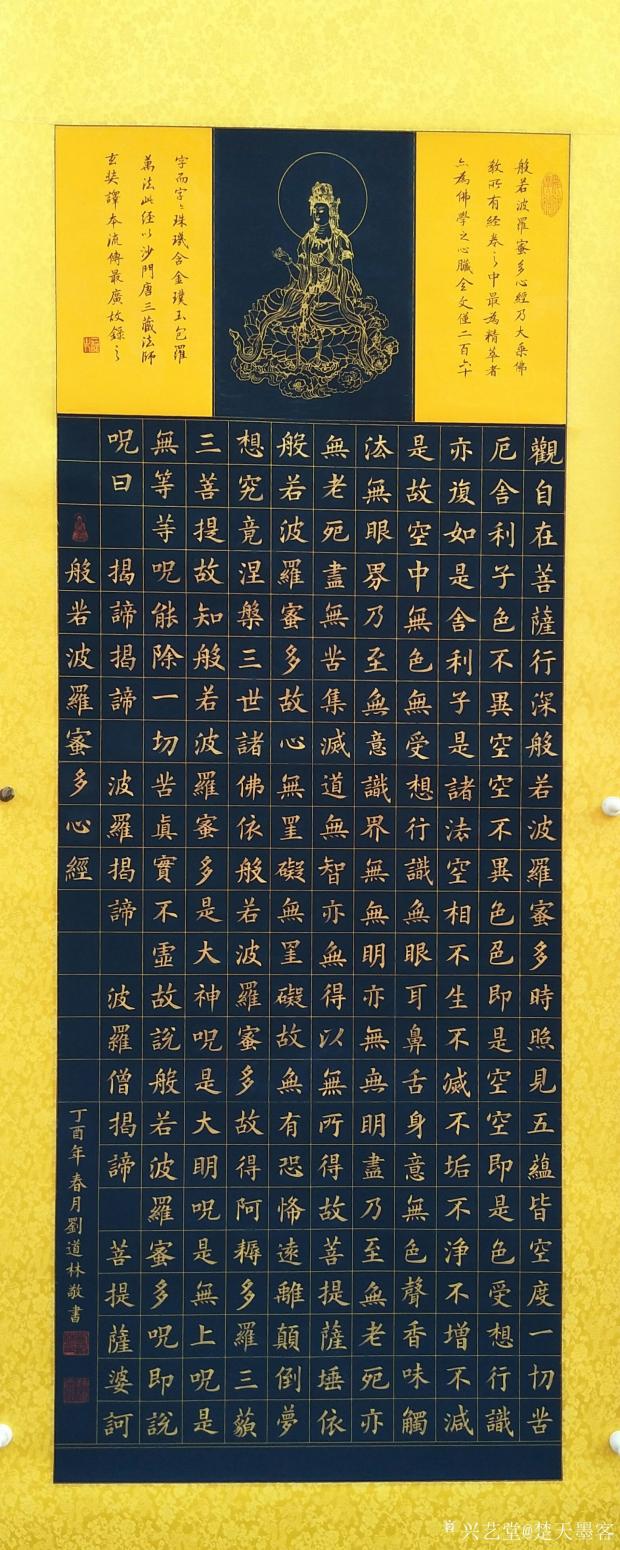 般若波羅蜜多心經乃大乘佛
教所有經卷之中最為精萃者
亦為佛學之心臟全文僅二百六十
字而字〻珠璣含金璞玉包羅
萬法此經以沙門唐三藏法師
玄奘譯本流傳最廣故錄之
觀自在菩薩行深般若波羅蜜多時照見五蘊皆空度一切苦
厄舍利子色不異空空不異色色即是空空即是色受想行識
亦復如是舍利子是諸法空相不生不滅不垢不淨不增不減
是故空中無色無受想行識無眼耳鼻舌身意無色聲香味觸
法無眼界乃至無意識界無無明亦無無明盡乃至無老死亦
無老死盡無苦集滅道無智亦無得以無所得故菩提薩埵依
般若波羅蜜多故心無罣礙無罣礙故無有恐怖遠離顛倒夢
想究竟涅槃三世諸佛依般若波羅蜜多故得阿耨多羅三藐
三菩提故知般若波羅蜜多是大神呪是大明呪是無上呪是
無等等呪能除一切苦真實不虛故說般若波羅蜜多呪即說
呪曰 揭諦揭諦 波羅揭諦 波羅僧揭諦 菩提薩婆訶
般若波羅蜜多心經
丁酉年春月劉道林敬書
兴艺堂@楚天墨客